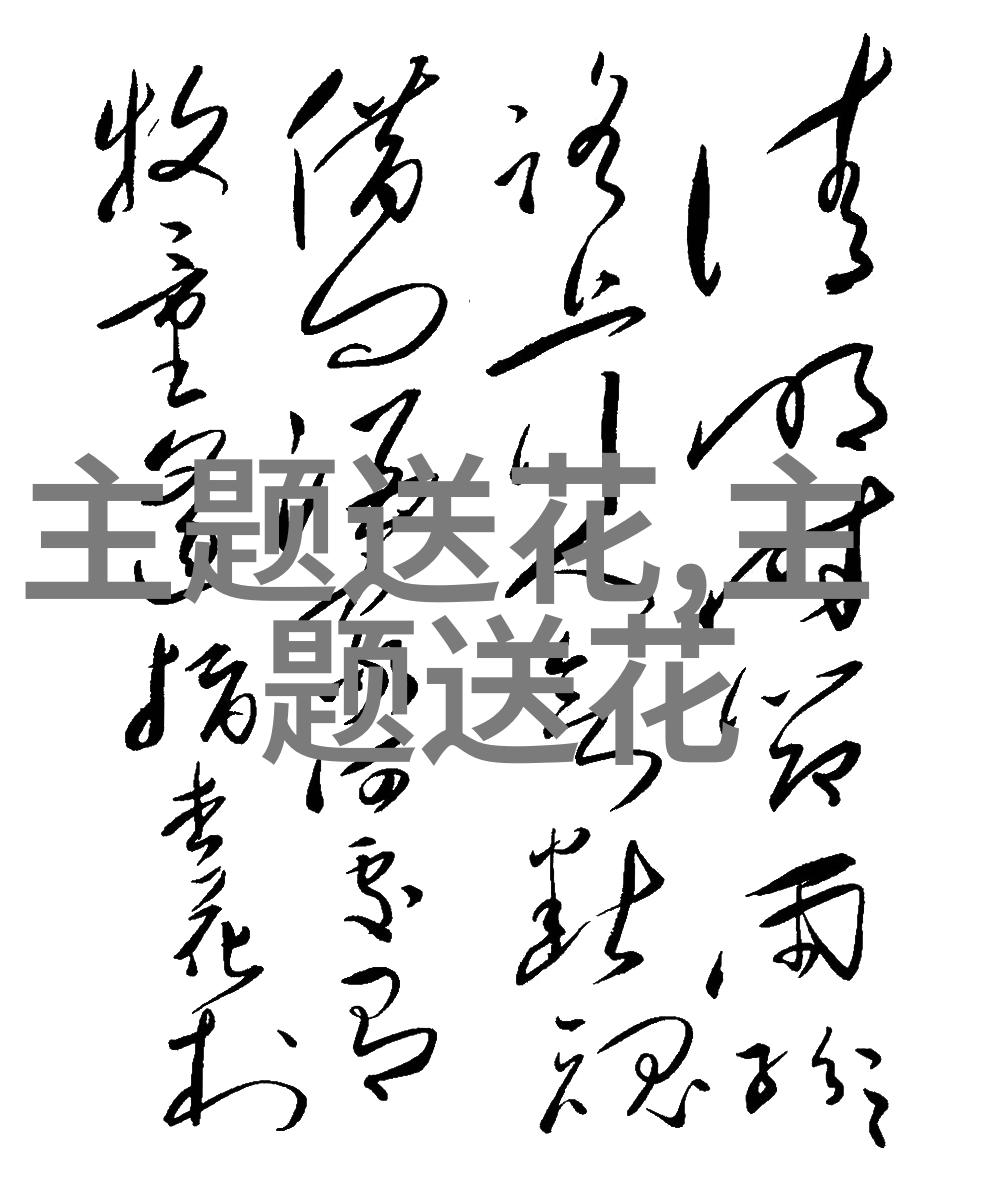 清明时节雨纷纷
路上行人欲断魂
借问酒家何处有
牧童遥指杏花村
主题送花,主
题送花